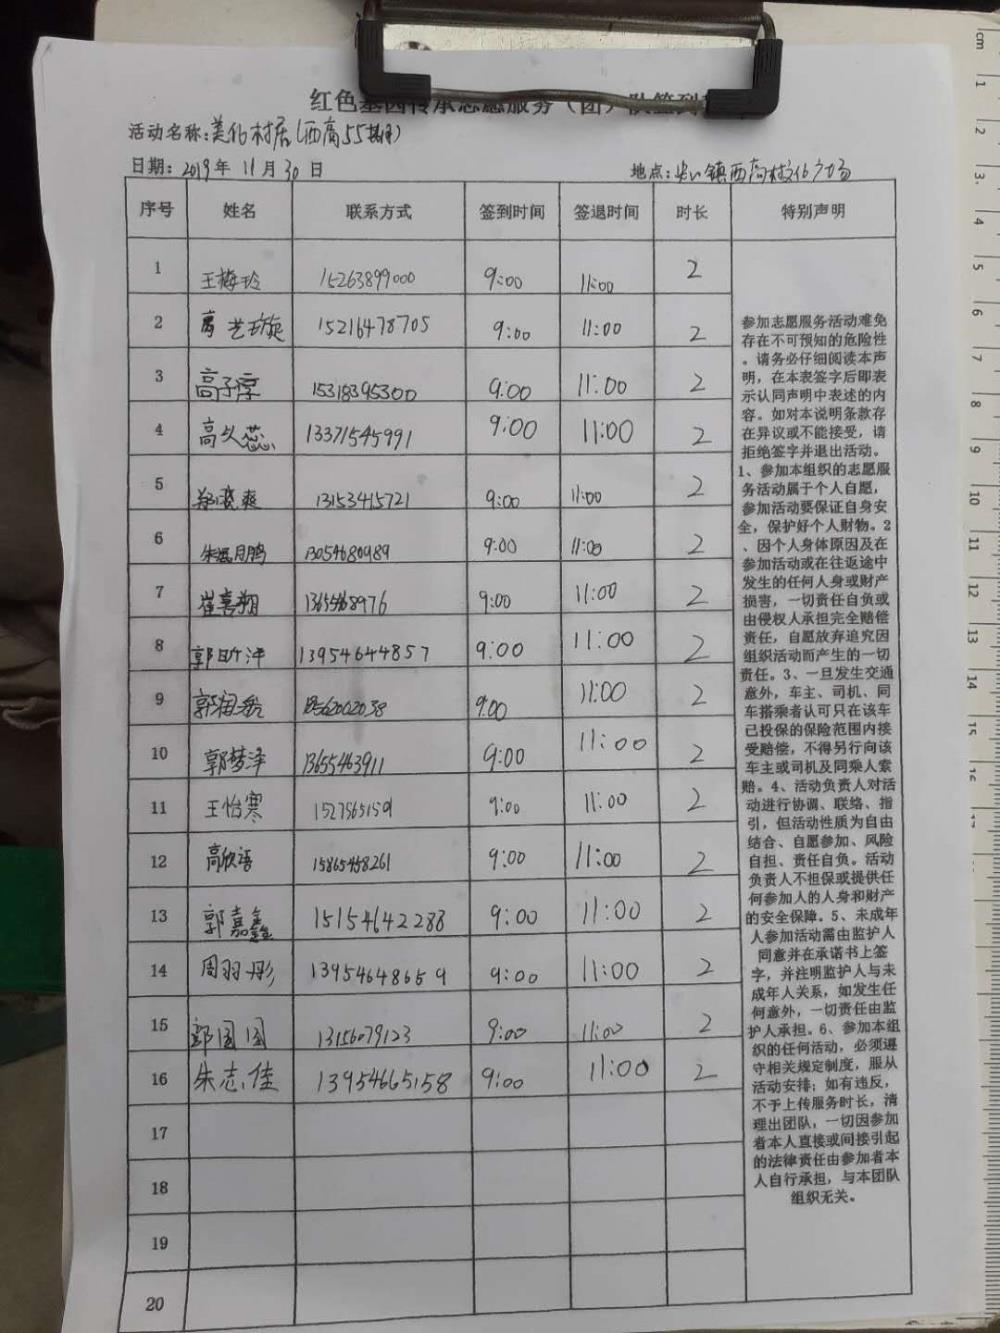 红色基因传承志愿服务（团）队签到
活动名称:美化村居(西高55期)
日期: 2019年 11月 30日 地点: 镇西高村文化广场
序号 姓名 联系方式 签到时间 签退时间 时长 特别声明
1 王梅玲 15263899000 9:00 11:00 2
2 高艺璇 15216478705 9:00 11:00 2
3 高子淳 15318395300 9:00 11:00 2
4 高久蕊 13371545991 9:00 11:00 2
5 郑奕爽 13153415721 9:00 11:00 2
6 朱 鹏 13054680989 9:00 11:00 2
7 崔喜翔 1365468976 9:00 11:00 2
8 郭 13954644857 9:00 11:00 2
9 郭润 9:00 11:00 2
10 郭梦泽 13655463911 9:00 11:00 2
11 王怡寒 9:00 11:00 2
12 高欣语 15865458261 9:00 11:00 2
13 郭嘉鑫 15154642288 9:00 11:00 2
14 周羽彤 13954648659 9:00 11:00 2
15 郭国国 13156079123 9:00 11:00 2
16 朱志佳 13954665158 9:00 11:00 2
17
18
19
20
参加志愿服务活动难免
存在不可预知的危险性
。请务必仔细阅读本声
明，在本表签字后即表
示认同声明中表述的内
容。如对本说明条款存
在异议或不能接受，请
拒绝签字并退出活动。
1、参加本组织的志愿服
务活动属于个人自愿，
参加活动要保证自身安
全，保护好个人财物。2
、因个人身体原因及在
参加活动或在往返途中
发生的任何人身或财产
损害，一切责任自负或
由侵权人承担完全赔偿
责任，自愿放弃追究因
组织活动而产生的一切
责任。3、一旦发生交通
意外，车主、司机、同
车搭乘者认可只在该车
已投保的保险范围内接
受赔偿，不得另行向该
车主或司机及同乘人索
赔。4、活动负责人对活
动进行协调、联络、指
引，但活动性质为自由
结合、自愿参加、风险
自担、责任自负。活动
负责人不担保或提供任
何参加人的人身和财产
的安全保障。5、未成年
人参加活动需由监护人
同意并在承诺书上签
字，并注明监护人与未
成年人关系，如发生任
何意外，一切责任由监
护人承担。6、参加本组
织的任何活动，必须遵
守相关规定制度，服从
活动安排；如有违反，
不予上传服务时长，清
理出团队，一切因参加
者本人直接或间接引起
的法律责任由参加者本
人自行承担，与本团队
组织无关。
cm
1
2
3
4
5
6
7
8
9
10
11
12
13
14
15
16